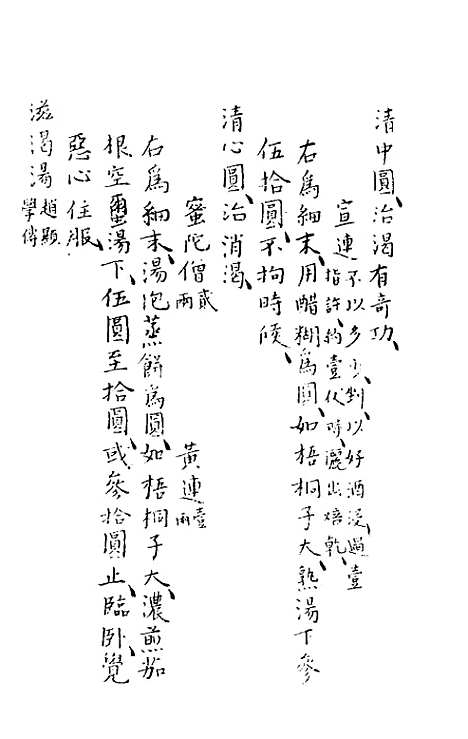 清中圓、治渴有奇功、
宣連不以多少、剉、以好酒浸、過壹
指許、約壹伏時、灑出焙乾、
右為細末、用醋糊為圓、如梧桐子大、熟湯下參
伍拾圓、不拘時候、
清心圓、治消渴、
蜜陀僧貳兩 黃連壹兩
右為細末、湯泡蒸餅為圓、如梧桐子大、濃煎茄
根空湯下、伍圓至拾圓、或參拾圓止、臨臥、覺
惡心住服、
滋渴湯趙顯學傳